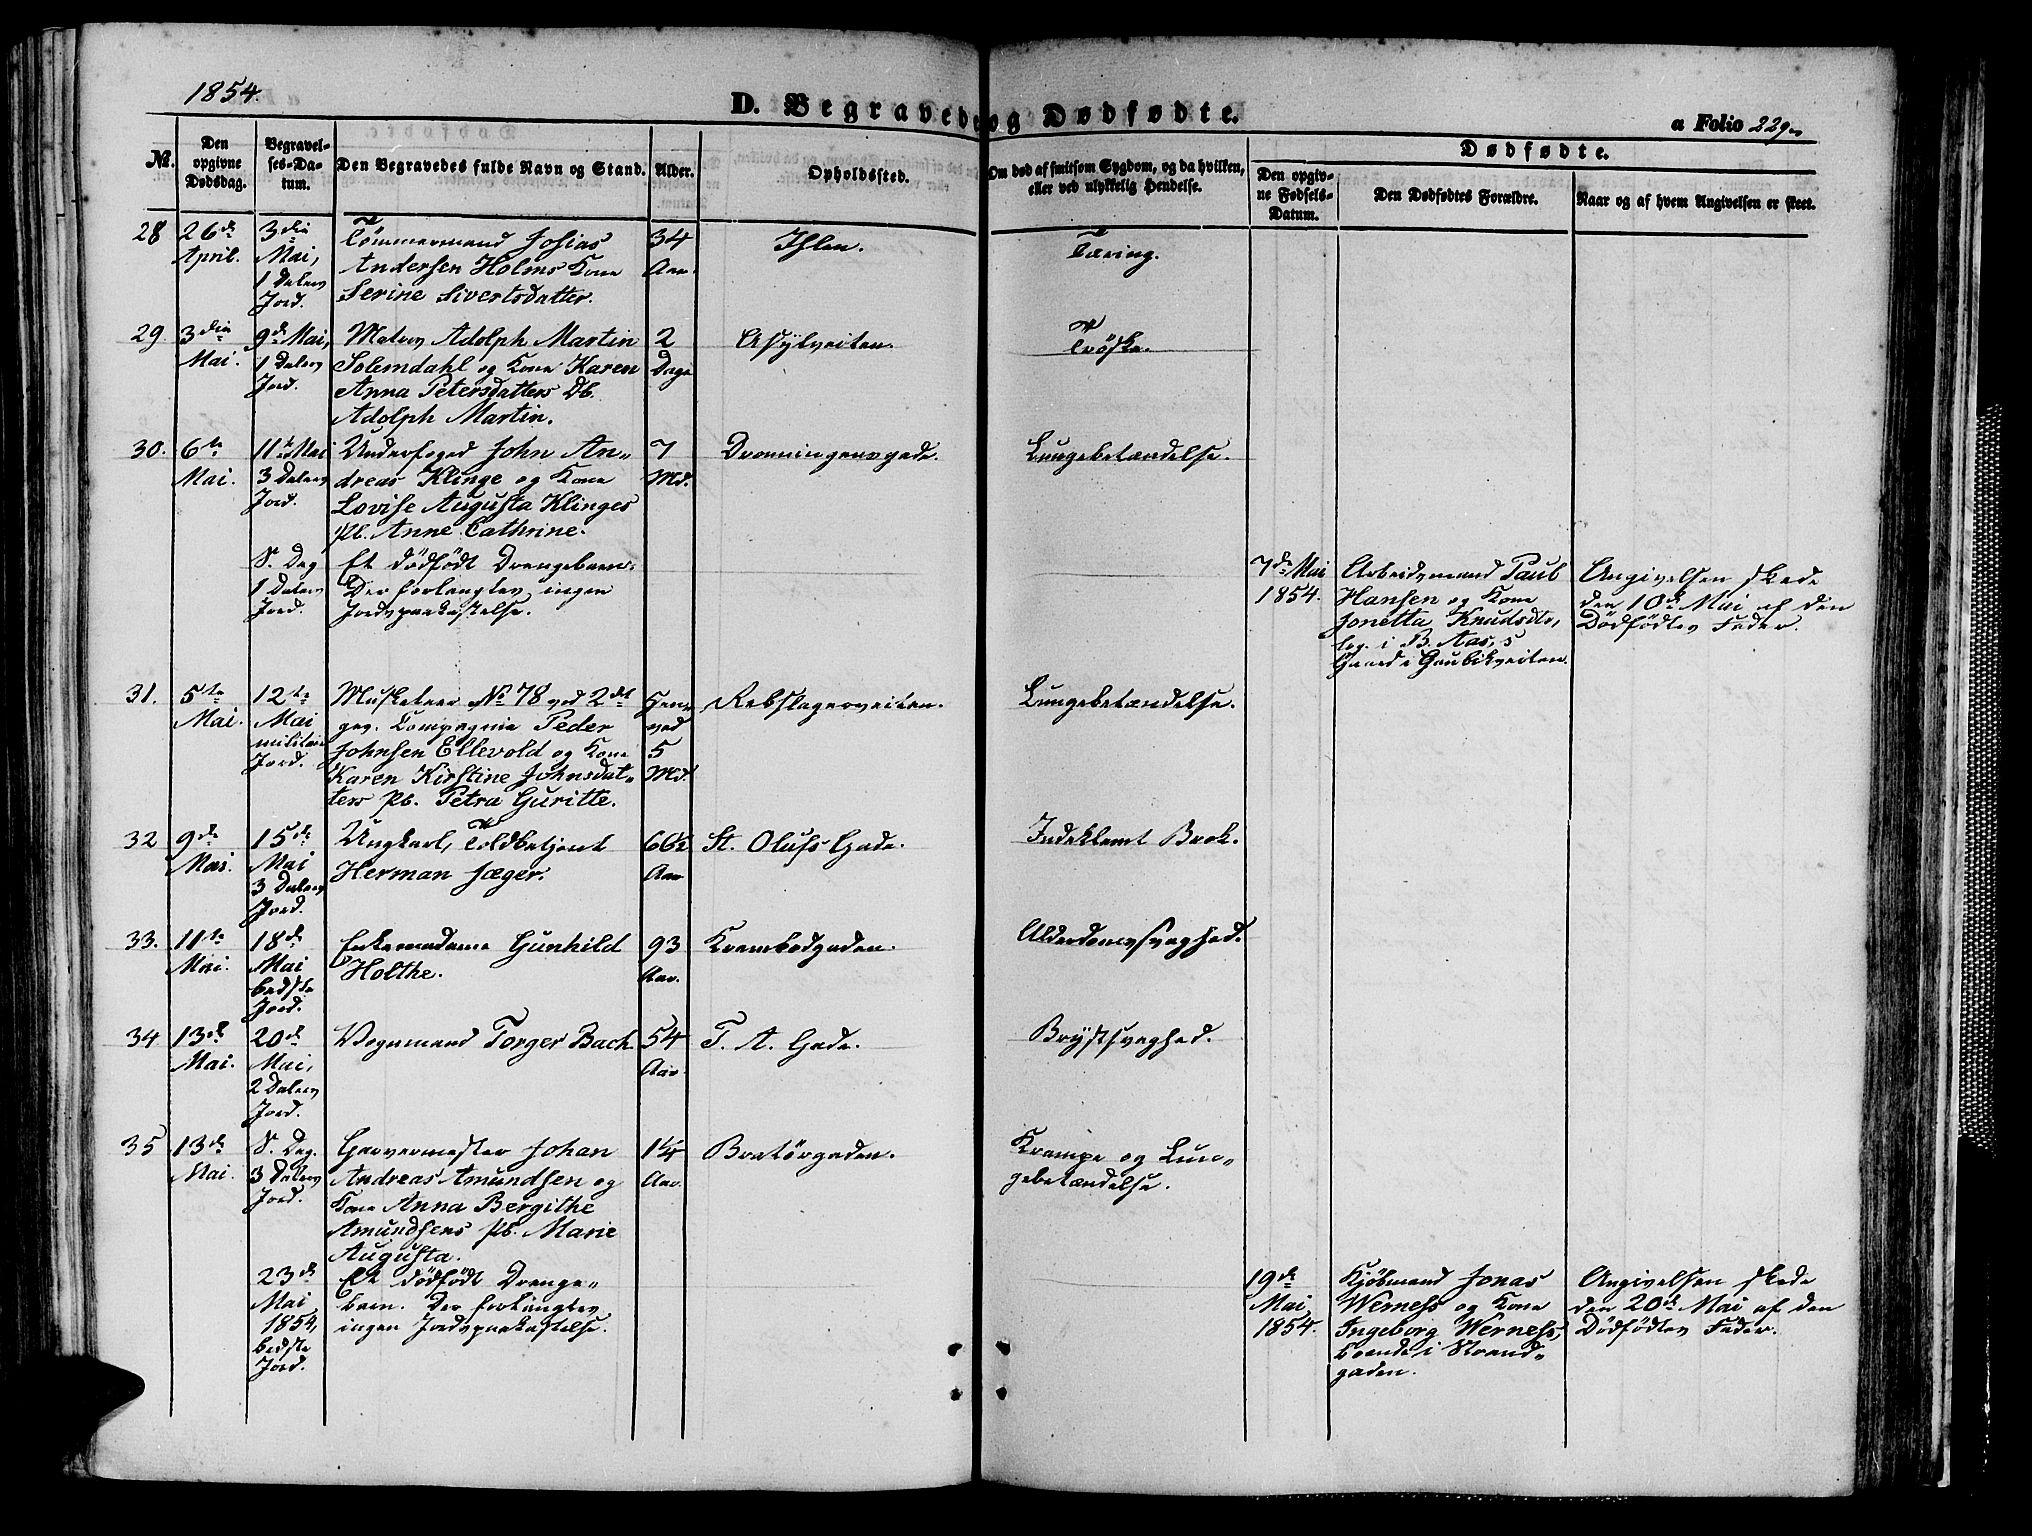 1854.
D. Begravede og Dødfødte.
a Folio 229.
No.
Den opgivne Dødsdag.
Begravelses-Datum.
Den Begravedes fulde Navn og Stand.
Alder.
Opholdssted.
Om død af smitsom Sygdom, og da hvilken, eller ved ulykkelig Hendelse.
Dødfødte.
Den opgivne Fødsels-Datum.
Den Dødfødtes Forældre.
Naar og af hvem Angivelsen er skeet.
28 26de 3die Tømmermand Josias 34 Ihlen. Tæring.
April. Mai, Andersen Holms Kone Aar.
1 Dalers Serine Sivertsdatter.
Jord.
29. 3die 9de Mai, Maler Adolph Martin 2 Asylveiten. Trøske.
Mai. 1 Dalers Solemdahl og Kone Karen Dage
Jord. Anna Petersdatters Db.
Adolph Martin.
30. 6te 11te Mai Underfoged John An- 7 Dronningensgade. Lungebetændelse.
Mai. 3 Dalers dreas Klinge og Kone Md.
Jord. Lovise Augusta Klinges
Pb. Anne Cathrine.
S. Dag Et dödfödt Drengebarn. 7de Mai Arbeidsmand Paul Angivelsen skede
1 Dalers Der forlangtes ingen 1854. Hansen og Kone den 10de Mai af den
Jord. Jordspaakastelse. Jonetta Knudsdtr, Dödfödtes Fader.
log. i B. Aas's
Gaard i Gaubikveiten.
31. 5te 12te Musketeer No 78 ved 2det Henved Rebslagerveiten. Lungebetændelse.
Mai. Mai gev. Compagnie Peder
militair Johnsen Ellevold og Kone 5
Jord. Karen Kirstine Johnsdat- Md.
ters Pb. Petra Guritte.
32 9de 15de Ungkarl, Toldbetjent 66½ St. Olufs Gade. Indeklemt Brok.
Mai. Mai Herman Jæger. Aar
3 Dalers
Jord.
33. 11te 18de Enkemadame Gunhild 93 Krambodgaden. Alderdomssvaghed.
Mai. Mai Holthe. Aar.
bedste
Jord.
34 13de 20de Vognmand Torger Bach 54 T. A. Gade. Brÿstsvaghed.
Mai. Mai, Aar.
2 Dalers
Jord.
35 13de S. Dag. Garvermester Johan 1¼ Bratörgaden. Krampe og Lun-
Mai. 3 Dalers Andreas Amundsen og Aar. gebetændelse.
Jord. Kone Anna Bergithe
Amundsens Pb. Marie
Augusta.
23de Et dödfödt Drenge- 19de Kjöbmand Jonas Angivelsen skede
Mai barn. Der forlangtes Mai Werness og Kone den 20de Mai af den
1854, ingen Jordspaakastelse. 1854. Ingeborg Werness, Dödfödtes Fader.
bedste boende i Strand-
Jord. gaden.